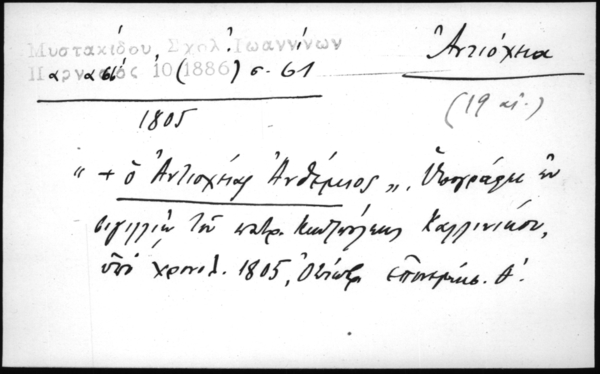 Μυστακίδου, Σχολ. Ἰωαννίνων
Παρνασσός 10 (1886) σ. 61
Ἀντιόχεια
(19 αἰ.)
1805
" + ὁ Ἀντιοχείας Ἀνθέμιος ". Ὑπογράφει ἐν
σιγιλλίῳ τοῦ πατρ. Κωνστ/πόλεως Καλλινίκου,
ὑπό χρονολ. 1805, Ὀκτωβρ. ἐπινεμήσ. Θ΄.